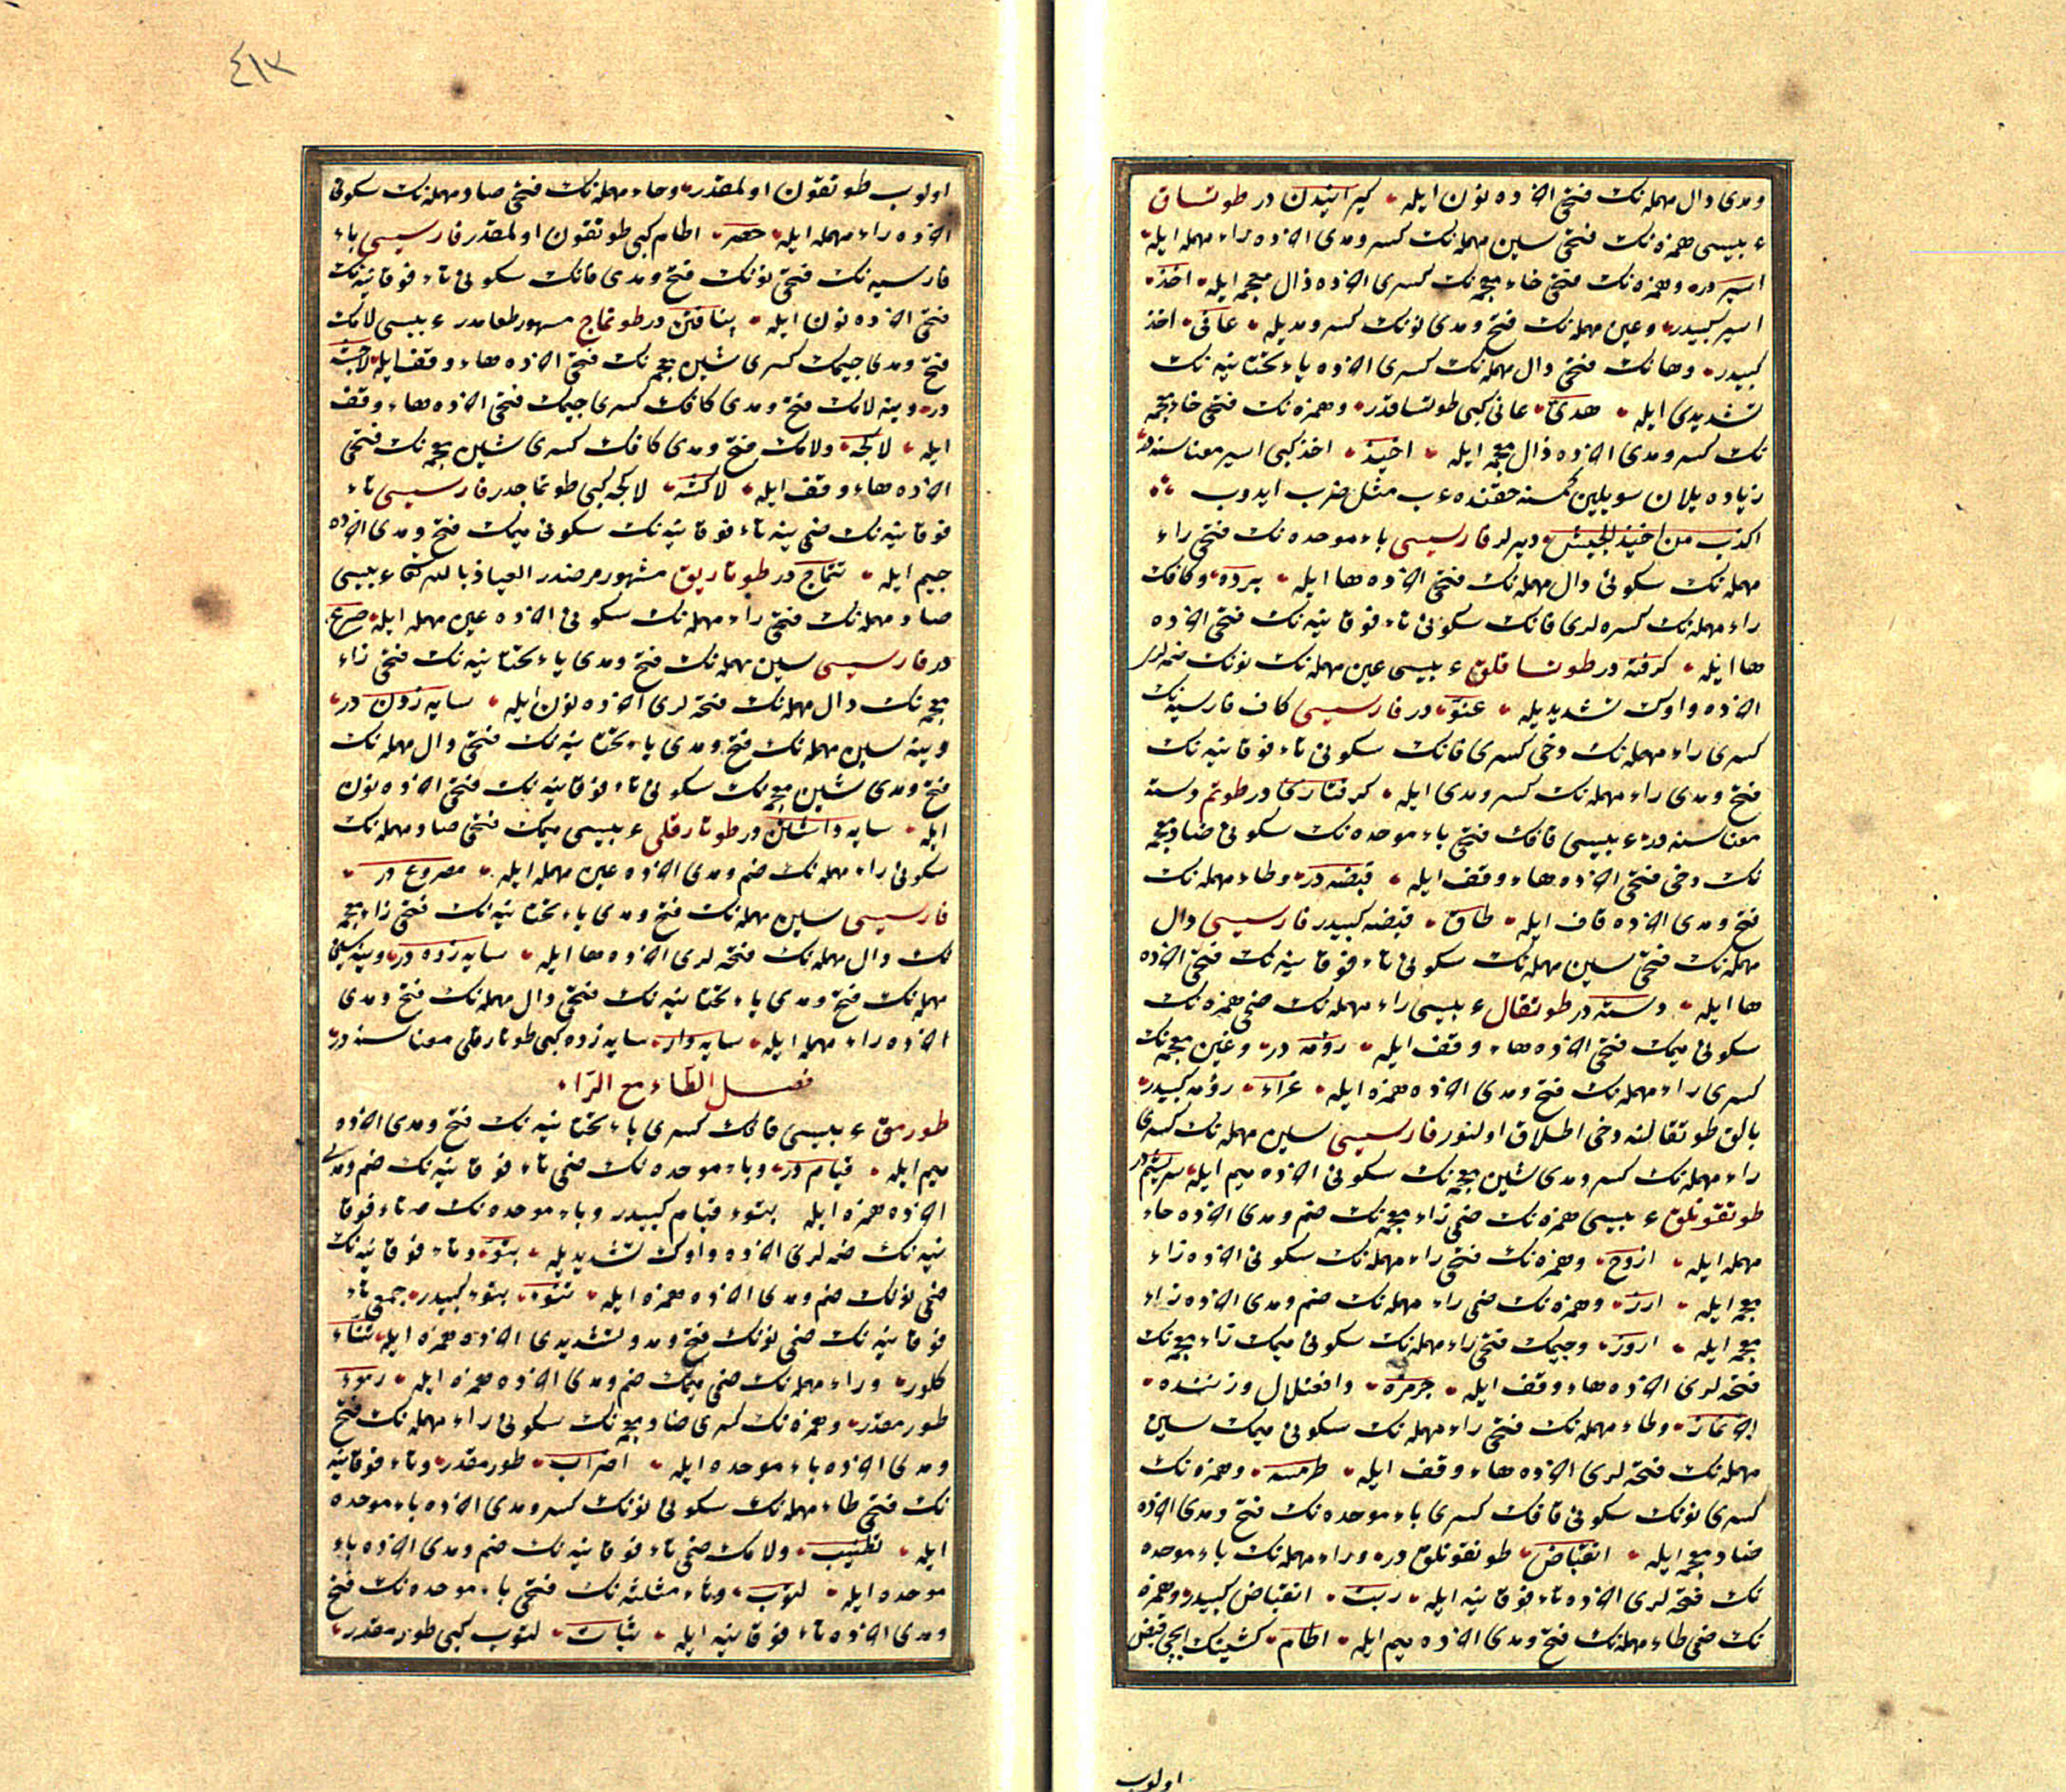 ومدی دال مهمله‌نك فتحی آخرده نون ایله كیرانیدن در طوتساق
عربیسی همزه‌نك فتحی سین مهمله‌نك كسر ومدی آخرده راء مهمله ایله
اسیر در وهمزه‌نك فتحی خاء معجمه‌نك كسری آخرده ذال معجمه ایله اخذ
اسیر كبیدر وعین مهمله‌نك فتح ومدی نونك كسر ومدیله عانی اخذ
كبیدر وهانك فتحی دال مهمله‌نك كسری آخرده یاء تحتانیه‌نك
تشدیدی ایله هدی عانی كبی طوتساقدر وهمزه‌نك فتحی خاء معجمه
نك كسر ومدی آخرده ذال معجمه ایله اخیذ اخذ كبی اسیر معناسنه در
زیاده یلان سویلین كمسنه حقنده عرب مثل ضرب ایدوب
اكذب من اخیذ الجیش دیرلر فارسیسی باء موحده‌نك فتحی راء
مهمله‌نك سكونی دال مهمله‌نك فتحی آخرده ها ایله برده وكافك
راء مهمله‌نك كسره‌لری فانك سكونی تاء فوقانیه‌نك فتحی آخرده
ها ایله كرفته در طوتساقلق عربیسی عین مهمله‌نك نونك ضمه‌لری
آخرده واوك تشدیدیله عنو در فارسیسی كاف فارسیه‌نك
كسری راء مهمله‌نك دخی كسری فانك سكونی تاء فوقانیه‌نك
فتح ومدی راء مهمله‌نك كسر ومدی ایله كرفتاری در طوتم دسته
معناسنه در عربیسی قافك فتحی باء موحده‌نك سكونی ضاد معجمه
نك دخی فتحی آخرده هاء وقف ایله قبضه در وطاء مهمله‌نك
فتح ومدی آخرده قاف ایله طاق قبضه كبیدر فارسیسی دال
مهمله‌نك فتحی سین مهمله‌نك سكونی تاء فوقانیه‌نك فتحی آخرده
ها ایله دسته در طوتقال عربیسی راء مهمله‌نك ضمی همزه‌نك
سكونی میمك فتحی آخرده هاء وقف ایله رؤمه در وغین معجمه‌نك
كسری راء مهمله‌نك فتح ومدی آخرده همزه ایله غراء رؤمه كبیدر
بالق طوتقالنه دخی اطلاق اولنور فارسیسی سین مهمله‌نك كسری
راء مهمله‌نك كسر ومدی شین معجمه‌نك سكونی آخرده میم ایله سریشم در
طوتقونلق عربیسی همزه‌نك ضمی زاء معجمه‌نك ضم ومدی آخرده حاء
مهمله ایله ازوح وهمزه‌نك فتحی راء مهمله‌نك سكونی آخرده زاء
معجمه ایله ارز وهمزه‌نك ضمی راء مهمله‌نك ضم ومدی آخرده زاء
معجمه ایله اروز وجیمك فتحی راء مهمله‌نك سكونی میمك زاء معجمه‌نك
فتحه‌لری آخرده هاء وقف ایله جرمزه وافعنلال وزننده
اجرنماز وطاء مهمله‌نك فتحی راء مهمله‌نك سكونی میمك سین
مهمله‌نك فتحه‌لری آخرده هاء وقف ایله طرمسه وهمزه‌نك
كسری نونك سكونی قافك كسری باء موحده‌نك فتح ومدی آخرده
ضاد معجمه ایله انقباض طوتقونلق در وراء مهمله‌نك باء موحده
نك فتحه‌لری آخرده تاء فوقانیه ایله ربت انقباض كبیدر وهمزه
نك ضمی طاء مهمله‌نك فتح ومدی آخرده میم ایله اطام كشینك ایچی قبض
اولوب
٤١٣
اولوب طوتقون اولمقدر وحاء مهمله‌نك فتحی صاد مهمله‌نك سكونی
آخرده راء مهمله ایله حصر اطام كبی طوتقون اولمقدر فارسیسی باء
فارسیه‌نك فتحی نونك فتح ومدی فانك سكونی تاء فوقانیه‌نك
فتحی آخرده نون ایله پنافتن در طوتماج مشهور طعامدر عربیسی لامك
فتح ومدی جیمك كسری شین معجمه‌نك فتحی آخرده هاء وقف ایله لاجشه
در وینه لامك فتح ومدی كافك كسری جیمك فتحی آخرده هاء وقف
ایله لاكجه ولامك فتح ومدی كافك كسری شین معجمه‌نك فتحی
آخرده هاء وقف ایله لاكشه لاكجه كبی طوتماجدر فارسیسی تاء
فوقانیه‌نك ضمی ینه تاء فوقانیه‌نك سكونی میمك فتح ومدی آخرده
جیم ایله تتماج در طوتاریق مشهور مرضدر العیاذ بالله تعالی عربیسی
صاد مهمله‌نك فتحی راء مهمله‌نك سكونی آخرده عین مهمله ایله صرع
در فارسیسی سین مهمله‌نك فتح ومدی یاء تحتانیه‌نك فتحی زاء
معجمه‌نك دال مهمله‌نك فتحه‌لری آخرده نون ایله سایه زدن در
وینه سین مهمله‌نك فتح ومدی یاء تحتانیه‌نك فتحی دال مهمله‌نك
فتح ومدی شین معجمه‌نك سكونی تاء فوقانیه‌نك فتحی آخرده نون
ایله سایه داشتن در طوتارقلی عربیسی میمك فتحی صاد مهمله‌نك
سكونی راء مهمله‌نك ضم ومدی آخرده عین مهمله ایله مصروع در
فارسیسی سین مهمله‌نك فتح ومدی یاء تحتانیه‌نك فتحی زاء معجمه
نك دال مهمله‌نك فتحه‌لری آخرده ها ایله سایه زده در وینه سین
مهمله‌نك فتح ومدی یاء تحتانیه‌نك فتحی دال مهمله‌نك فتح ومدی
آخرده راء مهمله ایله سایه دار سایه زده كبی طوتارقلی معناسنه در
فصل الطاء مع الراء
طورمق عربیسی قافك كسری یاء تحتانیه‌نك فتح ومدی آخرده
میم ایله قیام در وباء موحده‌نك ضمی تاء فوقانیه‌نك ضم ومدی
آخرده همزه ایله بتوء قیام كبیدر وباء موحده‌نك وتاء فوقا
نیه‌نك ضمه‌لری آخرده واوك تشدیدیله بتو وتاء فوقانیه‌نك
ضمی نونك ضم ومدی آخرده همزه ایله تنوء بتوء كبیدر جمعی تاء
فوقانیه‌نك ضمی نونك فتح ومد وتشدیدی آخرده همزه ایله تناء
كلور وراء مهمله‌نك ضمی میمك ضم ومدی آخرده همزه ایله رموء
طورمقدر وهمزه‌نك كسری ضاد معجمه‌نك سكونی راء مهمله‌نك فتح
ومدی آخرده باء موحده ایله اضراب طورمقدر وتاء فوقانیه
نك فتحی طاء مهمله‌نك سكونی نونك كسر ومدی آخرده باء موحده
ایله تطنیب ولامك ضمی تاء فوقانیه‌نك ضم ومدی آخرده باء
موحده ایله لتوب وثاء مثلثه‌نك فتحی باء موحده‌نك فتح
ومدی آخرده تاء فوقانیه ایله ثبات لتوب كبی طورمقدر